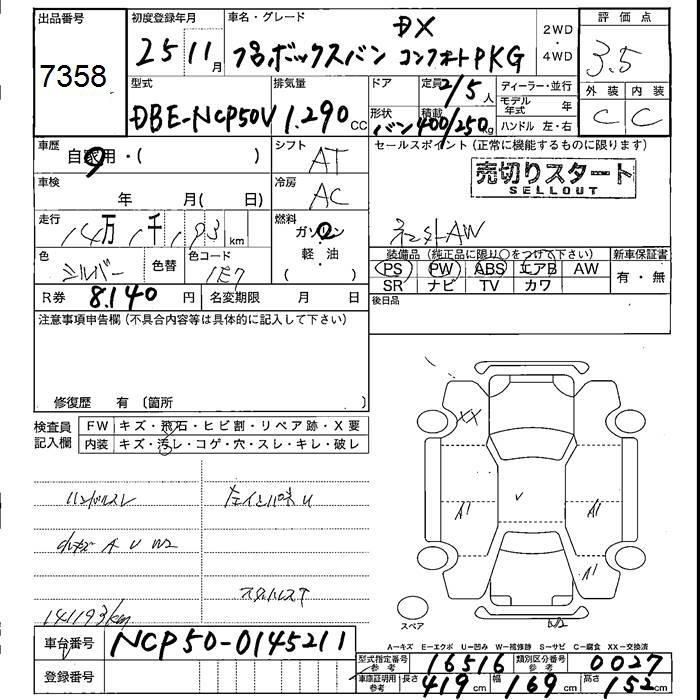 出品番号
7358
初度登録年月
25 11月
車名・グレード
DX
プロボックスバン コンフォートPKG
2WD
・
4WD
評価点
3.5
外装 内装
C C
型式
DBE-NCP50V
排気量
1.290cc
ドア
形状
バン
定員
2/5人
積載
400/250kg
ディーラー・並行
モデル年式 年
ハンドル 左・右
車歴
自家用・( )
シフト
AT
セールスポイント (正常に機能するものに限ります)
売切りスタート
SELLOUT
車検
年 月( 日)
冷房
AC
走行
14万1千193km
燃料
ガソリン
・
軽・油
社外AW
色
シルバー
色替
色コード
1E7
装備品 (純正品に限り○をつけて下さい)
新車保証書
PS PW ABS エアB AW
有・無
SR ナビ TV カワ
R券 8.140円
名変期限 月 日
後日品
注意事項申告欄(不具合内容等は具体的に記入して下さい)
修復歴 有 (箇所
検査員記入欄
FW キズ・飛石・ヒビ割・リペア跡・X要
内装 キズ・汚レ・コゲ・穴・スレ・キレ・破レ
XX
ハンドルスレ
U
A1 A1
A U W2
A1
W2
141193km
スペア
A-キズ E-エクボ U-凹み W-補修跡 S-サビ C-腐食 XX-交換済
車台番号
NCP50-0145211
型式指定番号
参考
16516
類別区分番号
参考
0027
登録番号
車庫証明用
参考
長さ 419cm 幅 169cm 高さ 152cm